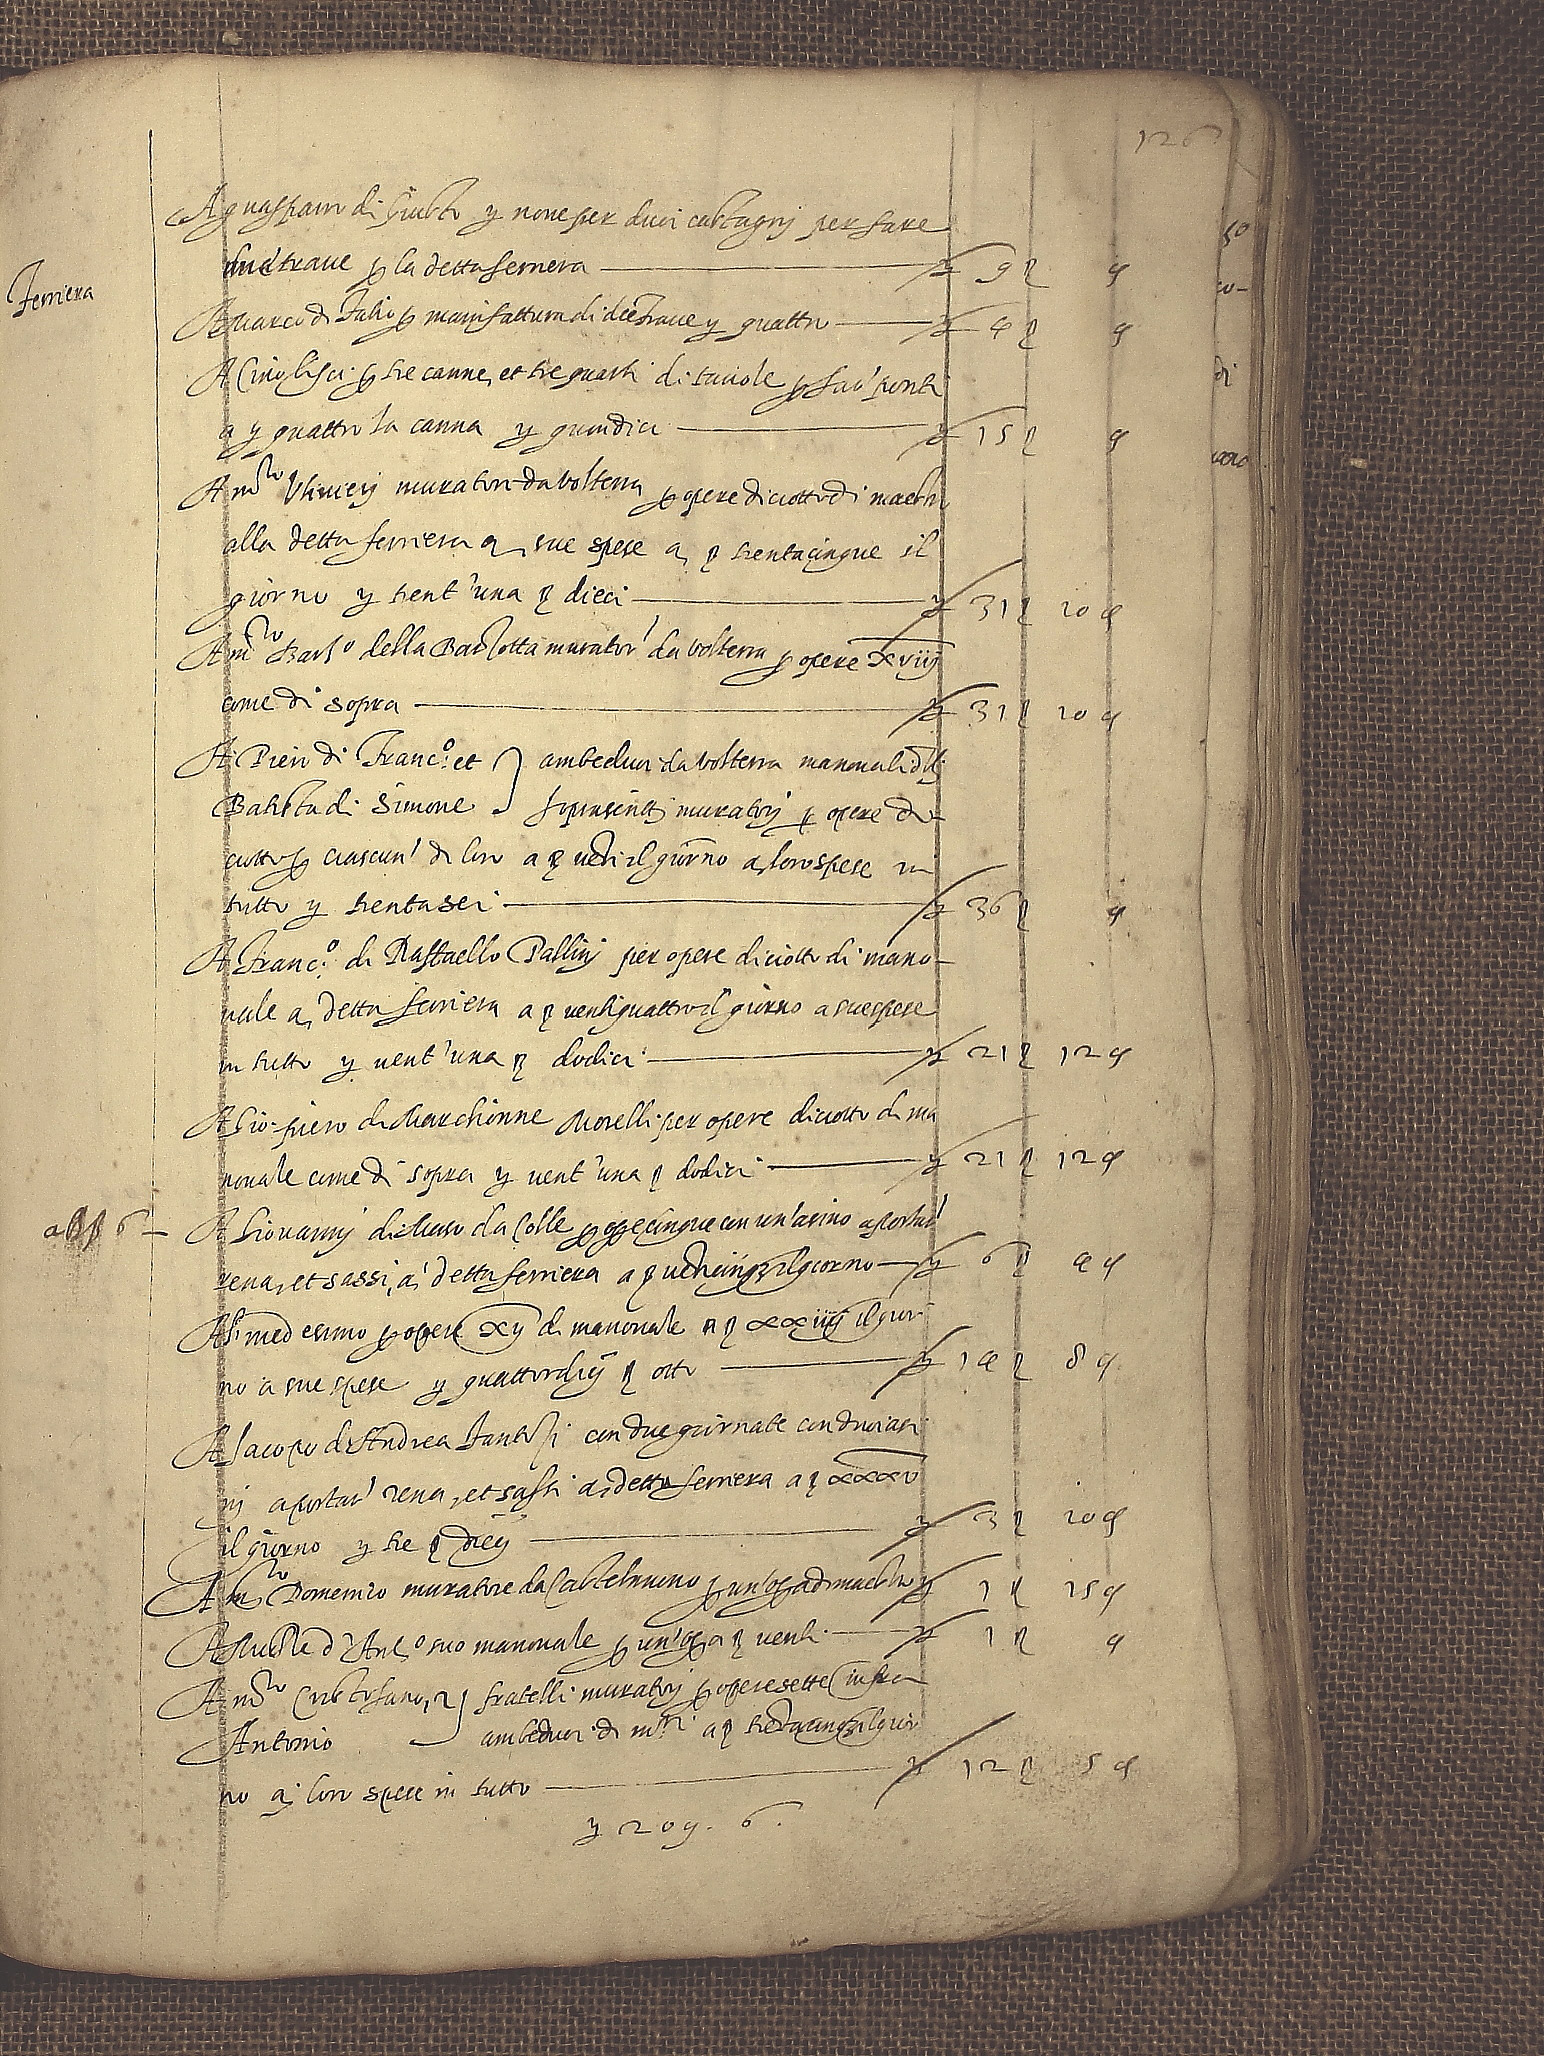 126
A guasparri di Giusto y nove per duoi castagnj per fare
due trave p la detta ferriera y 9 ꝗ ꝗ
Ferriera
A Marco di Fabio p manifattura di dee trave y quattro y 4 ꝗ ꝗ
A Cino lisci p tre canne, et tre quarti di tavole p far' ponti
a y quattro la canna y quindici y 15 ꝗ ꝗ
A m.ro Ulivierj muratore da volterra p opere diciotto di maestro
alla detta ferriera a, sue spese a, ꝗ trentacinque il
giorno y trent'una ꝗ dieci y 31 ꝗ 10 ꝗ
A m.ro Bart.o della murator' da volterra p opere xviij
come di sopra y 31 ꝗ 10 ꝗ
A Pieri di Franc.o et } ambeduoi da volterra manovali dllj
Batista di Simone } soprascritti muratorj p opere di-
ciotto p ciascun' di loro a ꝗ venti il giorno a, loro spese in
tutto y trentasei y 36 ꝗ ꝗ
A Franc.o di Raffaello Pallinj per opere diciotto di mano-
vale a, detta ferriera a ꝗ ventiquattro il giorno a sue spese
in tutto y vent'una ꝗ dodici y 21 ꝗ 12 ꝗ
A Gio: piero di Marchionne Morelli per opere diciotto di ma
novale come di sopra y vent'una ꝗ dodici y 21 ꝗ 12 ꝗ
6 - A Giovannj di Maso da Colle p ope cinque con un'asino a portar'
rena, et sassi, a' detta ferriera a ꝗ venticinq il giorno y 6 ꝗ 4 ꝗ
Al medesimo p opere xij di manovale a ꝗ xxiiij il gior
no a sue spese y quattordicj ꝗ otto y 14 ꝗ 8 ꝗ
A Jacopo d'Andrea con due giornate con duoi asi
nj a portar' rena, et sassi a, detta ferriera a ꝗ xxxv
il giorno y tre ꝗ diecj y 3 ꝗ 10 ꝗ
A m.ro Domenico muratore da Castelnuovo p un'opa di maestro y 1 ꝗ 15 ꝗ
A d'Ant.o suo manovale p un'opa a ꝗ venti y 1 ꝗ ꝗ
A m.ro Cristofano, 2 } fratelli muratorj p opere sette infra
Antonio } ambeduoi di m.ri a ꝗ trentacinq il gior
no a, loro spese in tutto y 12 ꝗ 5 ꝗ
y 209. 6.